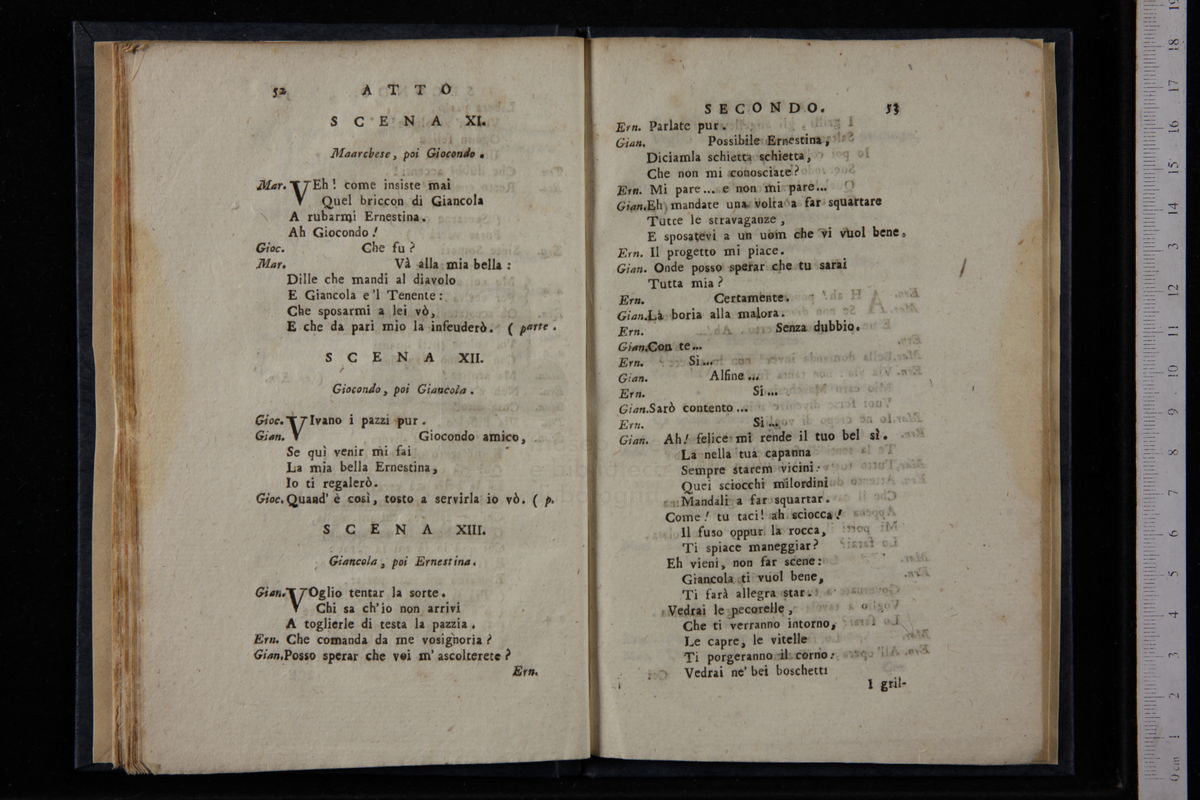 52 ATTO
SCENA XI.
Maarchese, poi Giocondo.
Mar. VEh! come insiste mai
Quel briccon di Giancola
A rubarmi Ernestina.
Ah Giocondo!
Gioc. Che fu?
Mar. Và alla mia bella:
Dille che mandi al diavolo
E Giancola e'l Tenente:
Che sposarmi a lei vò,
E che da pari mio la infeuderò. ( parte.
SCENA XII.
Giocondo, poi Giancola.
Gioc. VIvano i pazzi pur.
Gian. Giocondo amico,
Se quì venir mi fai
La mia bella Ernestina,
Io ti regalerò.
Gioc. Quand' è così, tosto a servirla io vò. ( p.
SCENA XIII.
Giancola, poi Ernestina.
Gian. VOglio tentar la sorte.
Chi sa ch'io non arrivi
A toglierle di testa la pazzia.
Ern. Che comanda da me vosignoria?
Gian. Posso sperar che voi m'ascolterete?
Ern.
SECONDO. 53
Ern. Parlate pur.
Gian. Possibile Ernestina,
Diciamla schietta schietta,
Che non mi conosciate?
Ern. Mi pare... e non mi pare...
Gian. Eh mandate una volta a far squartare
Tutte le stravaganze,
E sposatevi a un uom che vi vuol bene.
Ern. Il progetto mi piace.
Gian. Onde posso sperar che tu sarai
Tutta mia?
Ern. Certamente.
Gian. La boria alla malora.
Ern. Senza dubbio.
Gian. Con te...
Ern. Si...
Gian. Alfine...
Ern. Si...
Gian. Sarò contento...
Ern. Si...
Gian. Ah! felice mi rende il tuo bel sì.
La nella tua capanna
Sempre starem vicini:
Quei sciocchi milordini
Mandali a far squartar.
Come! tu taci! ah sciocca!
Il fuso oppur la rocca,
Ti spiace maneggiar?
Eh vieni, non far scene:
Giancola ti vuol bene,
Ti farà allegra star.
Vedrai le pecorelle,
Che ti verranno intorno,
Le capre, le vitelle
Ti porgeranno il corno:
Vedrai ne' bei boschetti
I gril-
0 cm 1 2 3 4 5 6 7 8 9 10 11 12 13 14 15 16 17 18 19